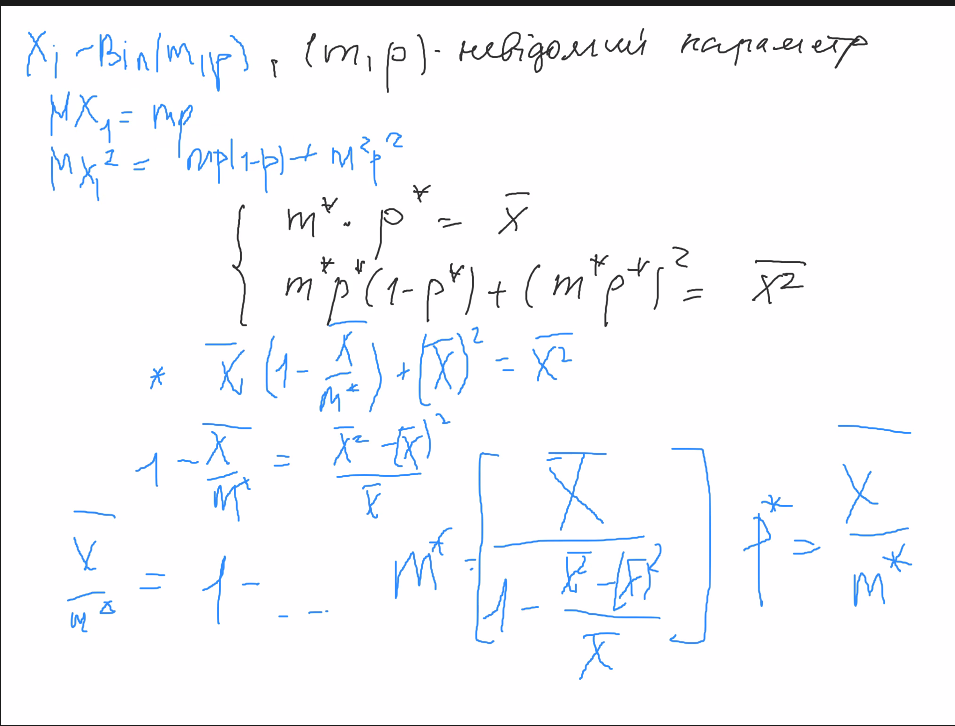 X_i ~ Bin(m, p), (m, p) - невідомий параметр
MX_1 = mp
MX_1^2 = mp(1-p) + m^2p^2
m^* · p^* = X̅
m^*p^*(1-p^*) + (m^*p^*)^2 = \overline{X^2}
* X̅ (1 - X̅/m^*) + (X̅)^2 = \overline{X^2}
1 - X̅/m^* = (\overline{X^2} - (X̅)^2)/X̅
X̅/m^* = 1 - ... m^* = [X̅/(1 - (\overline{X^2} - (X̅)^2)/X̅)] p^* = X̅/m^*